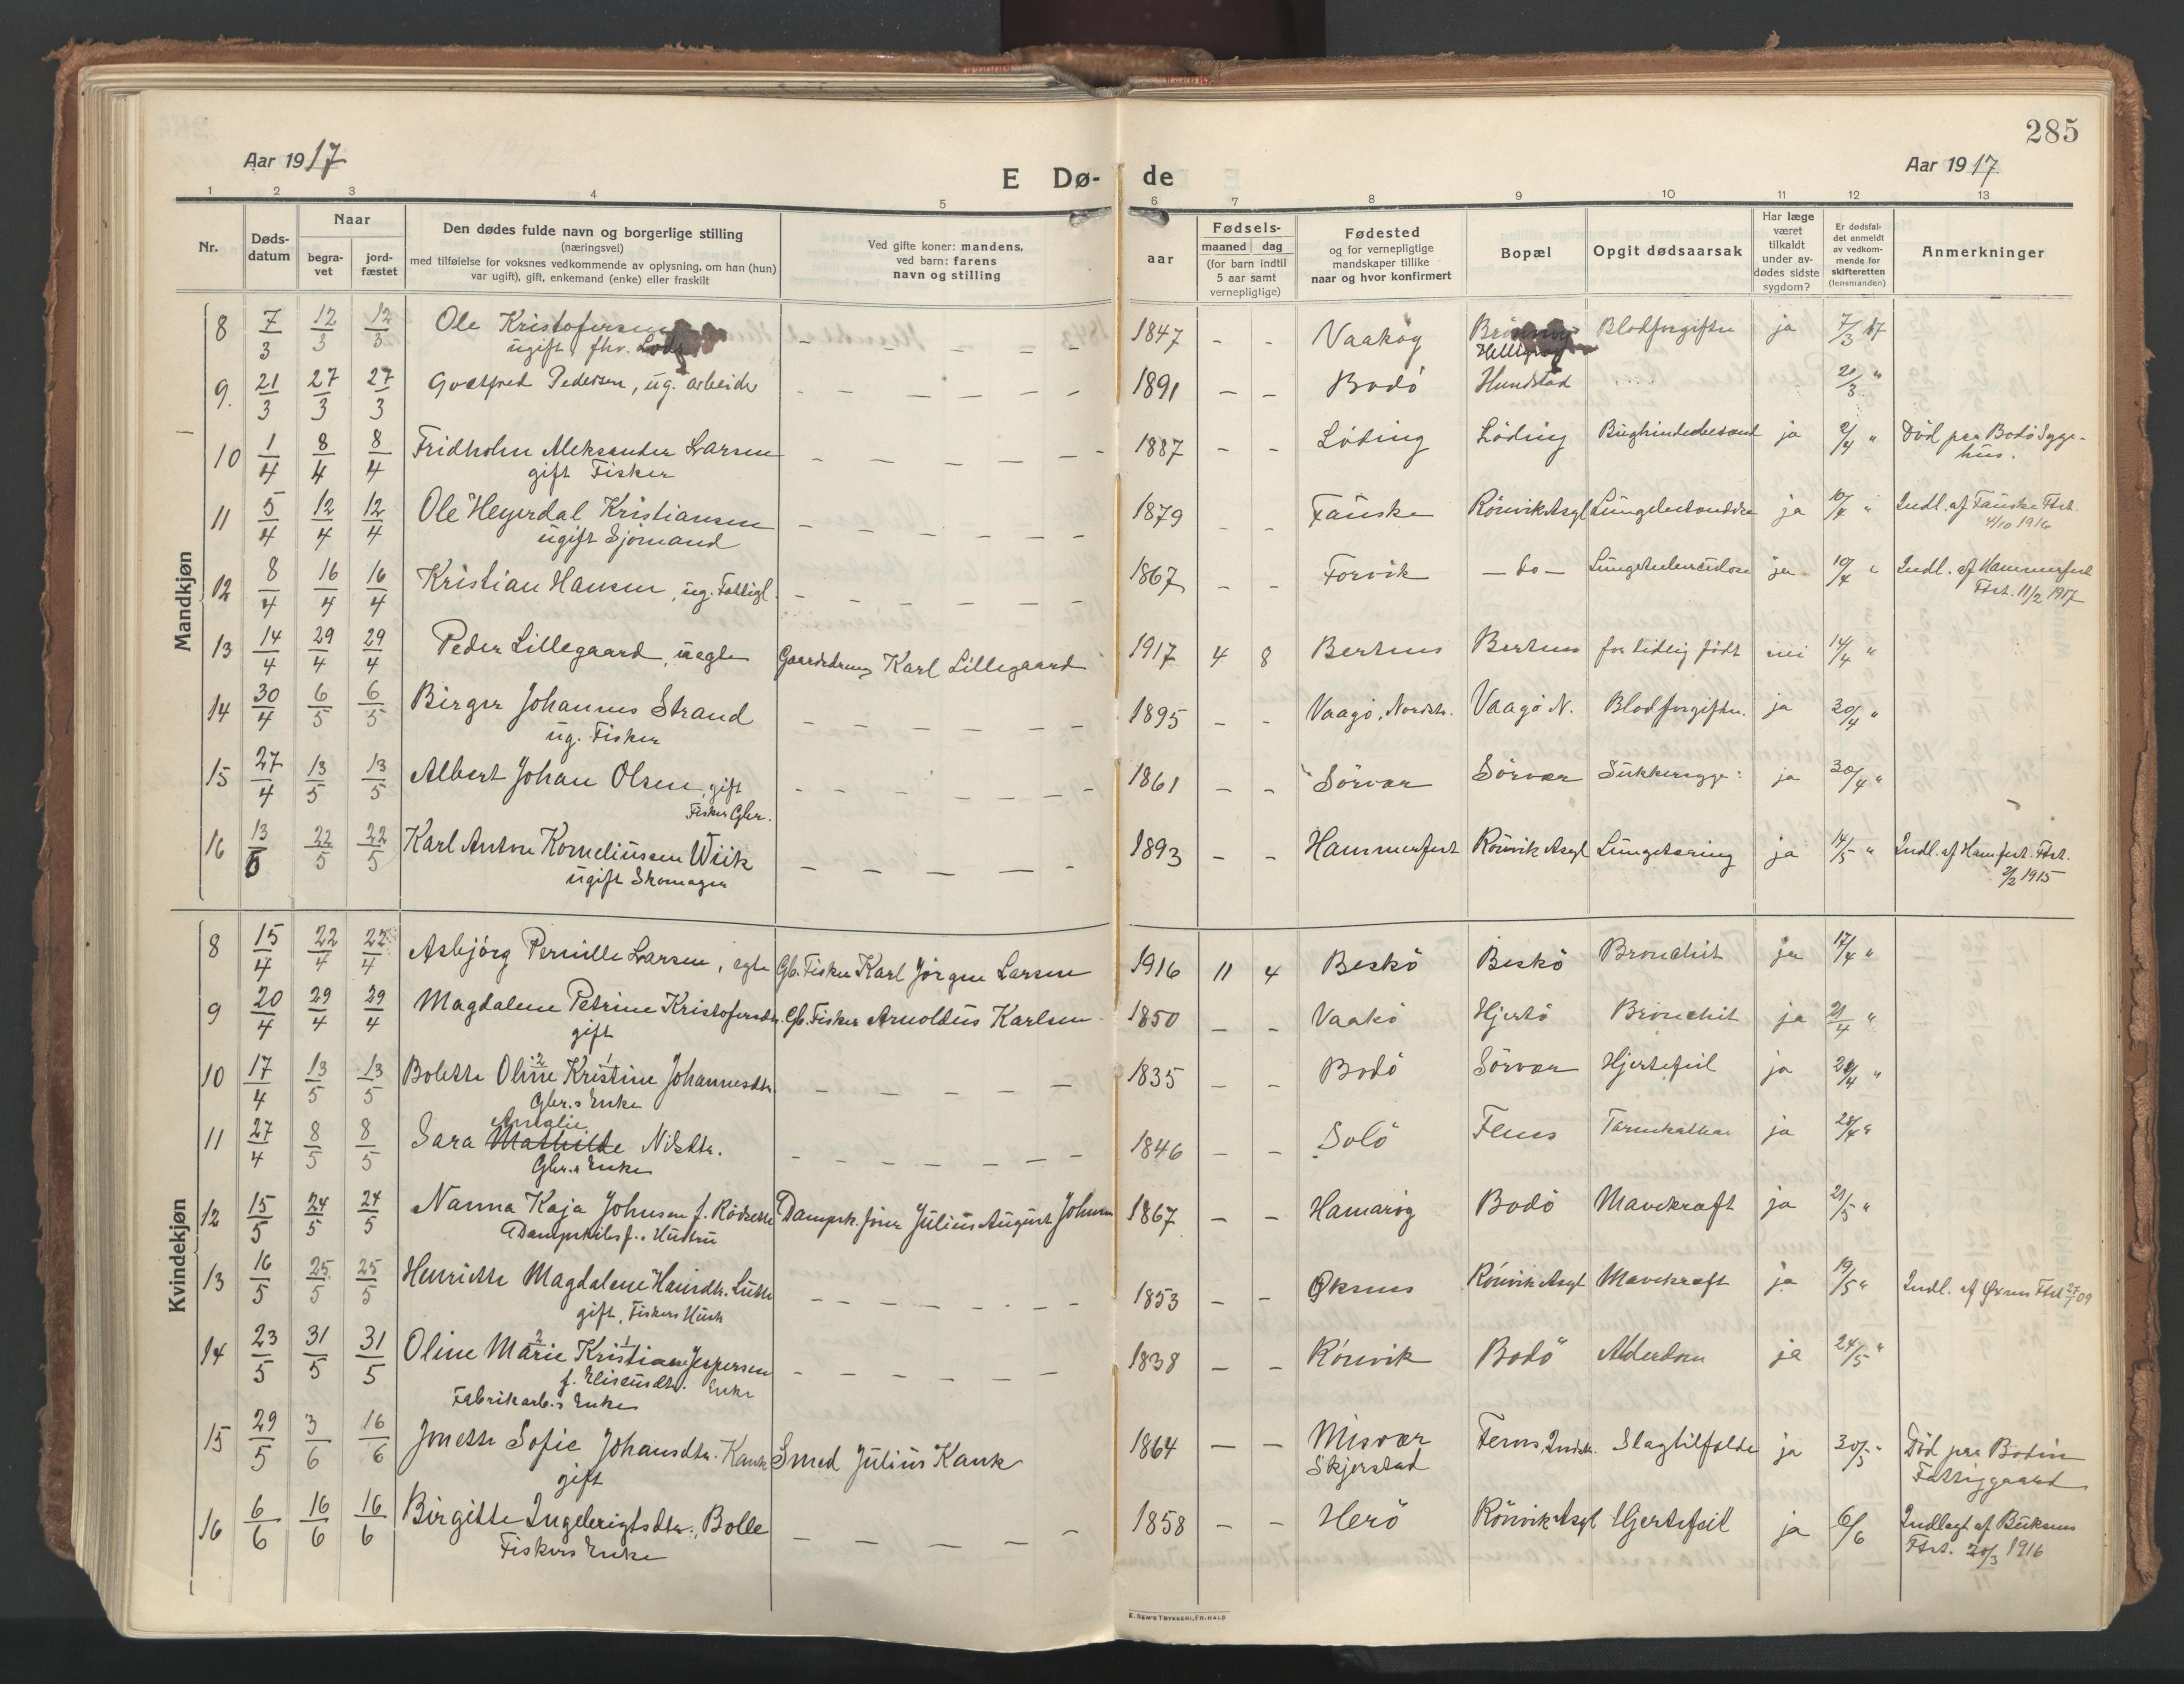 285
Aar 1917
E Dø-
de
Aar 1917
1 2 3 4 5 6 7 8 9 10 11 12 13
Nr.
Døds-
datum
Naar
begra-
vet
jord-
fæstet
Den dødes fulde navn og borgerlige stilling
(næringsvei)
med tilføielse for voksnes vedkommende av oplysning, om han (hun)
var ugift), gift, enkemand (enke) eller fraskilt
Ved gifte koner: mandens,
ved barn: farens
navn og stilling
aar
Fødsels-
maaned dag
(for barn indtil
5 aar samt
vernepligtige)
Fødested
og for vernepligtige
mandskaper tillike
naar og hvor konfirmert
Bopæl
Opgit dødsaarsak
Har læge
været
tilkaldt
under av-
dødes sidste
sygdom?
Er dødsfal-
det anmeldt
av vedkom-
mende for
skifteretten
(lensmanden)
Anmerkninger
Mandkjøn
8 7/3 12/3 12/3 Ole Kristofersen - - - - - 1847 - - Vaakøg Blodforgiftn ja 7/3 17
ugift, fhv.
9. 21/3 27/3 27/3 Gottfred Pedersen, ug. arbeider - - - - - - 1891 - - Bodö Hundstad 21/3 "
10 1/4 8/4 8/4 Fridholm Aleksander Larsen - - - - - - 1887 - - Löding Löding ja 2/4 " Död paa Bodö Syge-
gift Fisker hus.
11 5/4 12/4 12/4 Ole Heyerdal Kristiansen - - - - - - 1879 - - Fauske Rönvik Asyl ja 10/4 " Indl. af Fauske Fst.
ugift Sjömand 4/10 1916
12 8/4 16/4 16/4 Kristian Hansen, ug. Fattigl. - - - - - - 1867 - - Forvik - do - Lungetuberculose ja 10/4 " Indl. af Hammerfest
Fst. 11/2 1917
13 14/4 29/4 29/4 Peder Lillegaard, uægte Gaardsdreng Karl Lillegaard 1917 4 8 Bertnes Bertnes for tidlig födt nei 14/4 "
14 30/4 6/5 6/5 Birger Johannes Strand - - - - - - 1895 - - Vaagö, Nordstr. Vaagö N. Blodforgiftn. ja 30/4 "
ug. Fisker
15 27/4 13/5 13/5 Albert Johan Olsen, gift - - - - - - - 1861 - - Sörvær Sörvær Sukkersyge ja 30/4 "
Fisker Gbr.
16 13/5 22/5 22/5 Karl Anton Korneliussen Wiik - - - - - 1893 - - Hammerfest Rönvik Asyl Lungetæring ja 14/5 " Indl. af Hamfest. Fst.
ugift Skomager 2/2 1915
Kvindekjøn
8 15/4 22/4 22/4 Asbjörg Pernille Larsen, egte Gb. Fisker Karl Jörgen Larsen 1916 11 4 Beskö Beskö Bronchit ja 17/4 "
9 20/4 29/4 29/4 Magdalene Petrine Kristofersdtr. Gb. Fisker Arnoldus Karlsen 1850 - - Vaakö Hjertö Bronchit ja 21/4 "
gift
10 17/4 13/5 13/5 Bolette Oline 2 Kristine 1 Johannesdtr. - - - - - 1835 - - Bodö Sörvær Hjertefeil ja "
Gbr.s Enke
Amalie
11 27/4 8/5 8/5 Sara Mathilde Nilsdtr. - - - - - - - 1846 - - Solö ja 28/4 "
Gbr.s Enke
12 15/5 24/5 24/5 Nanna Kaja Johnsen f. Rödsette Dampsk.förer Julius August Johnsen 1867 - - Hamaröy Bodö Mavekræft ja 21/5 "
Dampskibsf.s Hustru
13 16/5 25/5 25/5 Henriette Magdalene Hansdtr. - - - - - - 1853 - - Øksnes Rönvik Asyl Mavekræft ja 19/5 " Indl. af Øxnes Fst 27/7 09
gift, Fiskers Hustr
14 23/5 31/5 31/5 Oline Marie 2 Kristiane 1 Jespersen - - - - - - 1838 - - Rönvik Bodö Alderdom ja 24/5 "
f. Eliseusdtr. Enke
Fabrikarb.s Enke
15 29/5 3/6 16/6 Jonette Sofie Johansdtr. Kank Smed Julius Kank 1864 - - Misvær Slagtilfælde ja 30/5 " Död paa Bodin
gift Skjerstad Fattiggaard
16 6/6 16/6 16/6 Birgitte Ingebrigtsdtr. Bolle - - - - - 1858 - - Herö Rönvik Asyl Hjertefeil ja 6/6 Indlagt af Buksnes
Fiskers Enke Fst. 20/3 1916
E. SEM'S TRYKKERI, FR.HALD